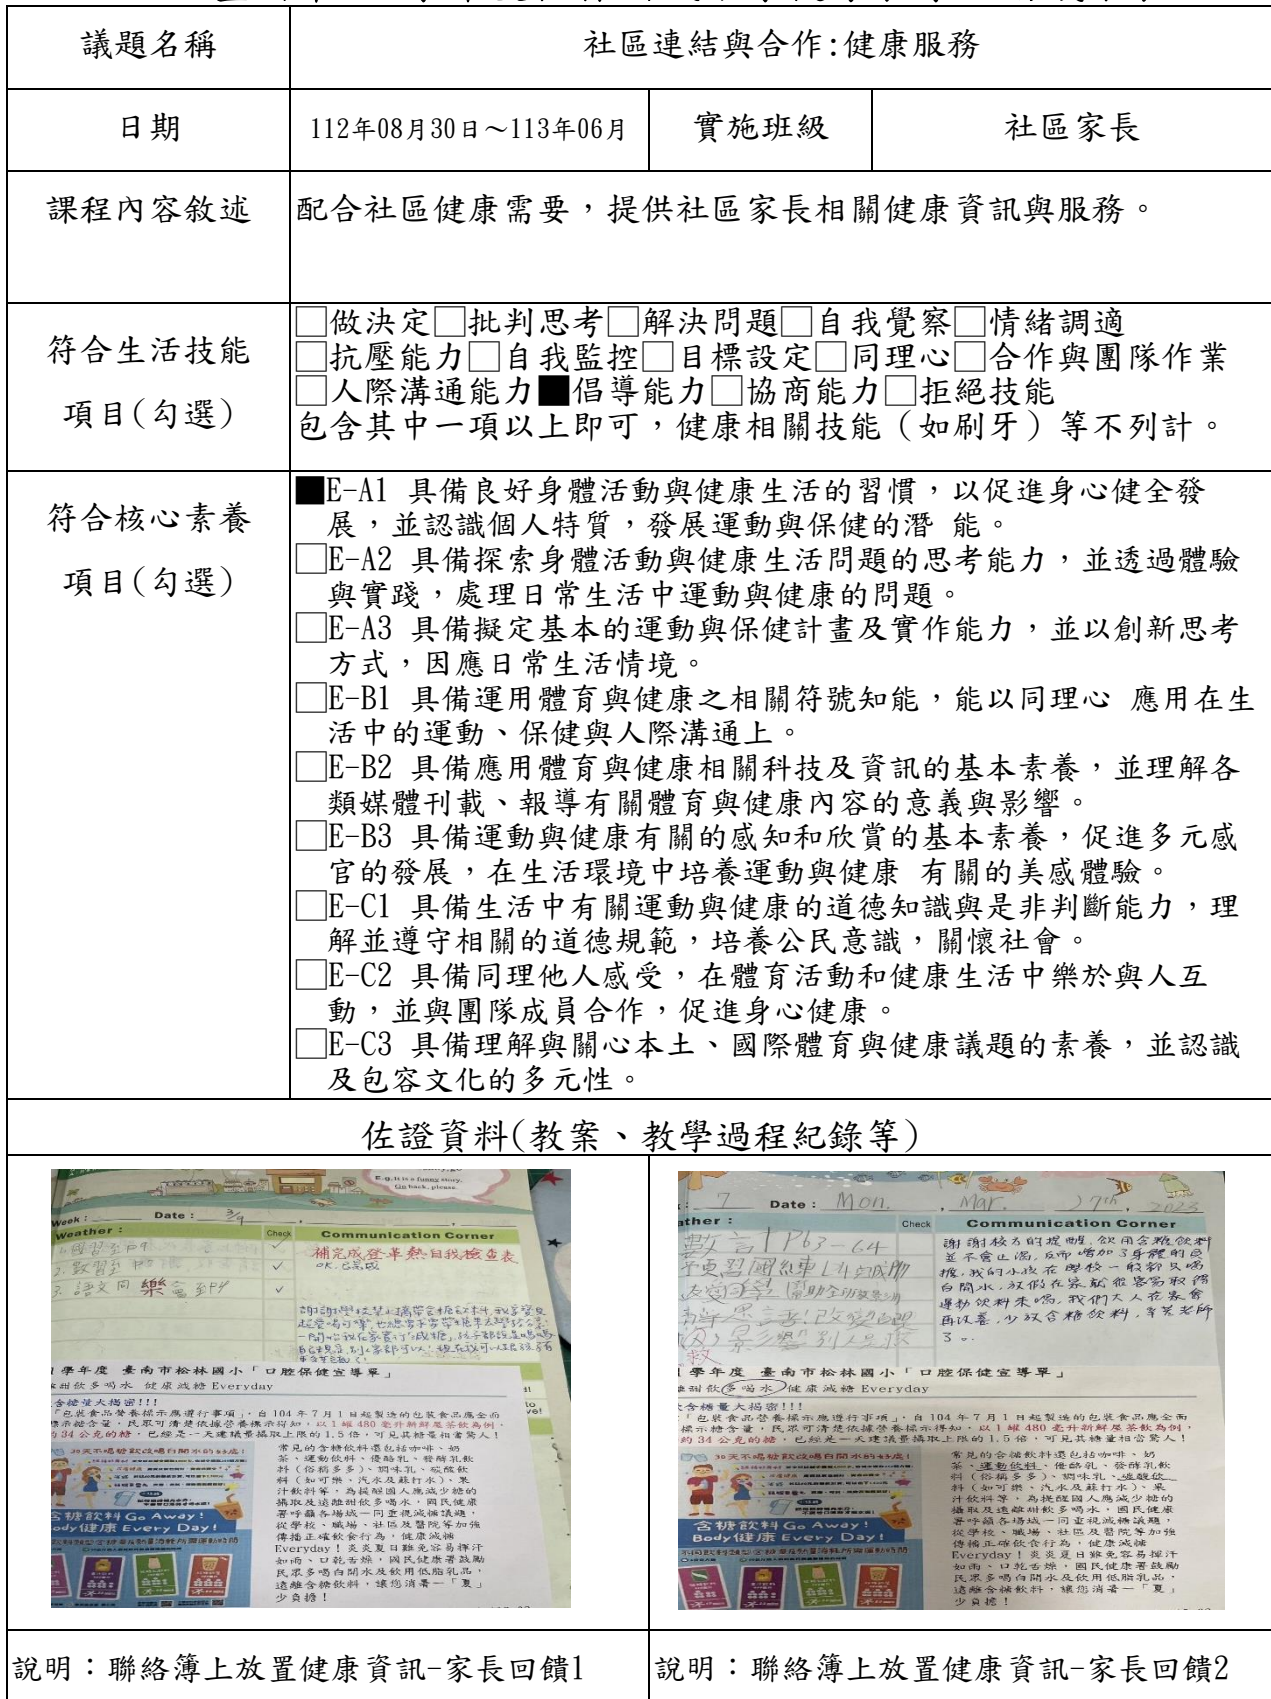 議題名稱
社區連結與合作:健康服務
日期
112年08月30日～113年06月
實施班級
社區家長
課程內容敘述
配合社區健康需要，提供社區家長相關健康資訊與服務。
符合生活技能
項目(勾選)
□做決定□批判思考□解決問題□自我覺察□情緒調適
□抗壓能力□自我監控□目標設定□同理心□合作與團隊作業
□人際溝通能力■倡導能力□協商能力□拒絕技能
包含其中一項以上即可，健康相關技能（如刷牙）等不列計。
符合核心素養
項目(勾選)
■E-A1 具備良好身體活動與健康生活的習慣，以促進身心健全發
展，並認識個人特質，發展運動與保健的潛 能。
□E-A2 具備探索身體活動與健康生活問題的思考能力，並透過體驗
與實踐，處理日常生活中運動與健康的問題。
□E-A3 具備擬定基本的運動與保健計畫及實作能力，並以創新思考
方式，因應日常生活情境。
□E-B1 具備運用體育與健康之相關符號知能，能以同理心 應用在生
活中的運動、保健與人際溝通上。
□E-B2 具備應用體育與健康相關科技及資訊的基本素養，並理解各
類媒體刊載、報導有關體育與健康內容的意義與影響。
□E-B3 具備運動與健康有關的感知和欣賞的基本素養，促進多元感
官的發展，在生活環境中培養運動與健康 有關的美感體驗。
□E-C1 具備生活中有關運動與健康的道德知識與是非判斷能力，理
解並遵守相關的道德規範，培養公民意識，關懷社會。
□E-C2 具備同理他人感受，在體育活動和健康生活中樂於與人互
動，並與團隊成員合作，促進身心健康。
□E-C3 具備理解與關心本土、國際體育與健康議題的素養，並認識
及包容文化的多元性。
佐證資料(教案、教學過程紀錄等)
E.g. It is a funny story.
Go back, please.
Week :
Date : 3/9
Weather :
Check
Communication Corner
補完成登革熱自我檢查表
OK, 已完成
學年度 臺南市松林國小「口腔保健宣導單」
甜飲多喝水 健康減糖 Everyday
含糖量大揭密!!!
「包裝食品營養標示應遵行事項」，自 104 年 7 月 1 日起製造的包裝食品應全面
標示糖含量，民眾可清楚依據營養標示得知，以 1 罐 480 毫升新鮮屋茶飲為例，
約 34 公克的糖，已經是一天建議量攝取上限的 1.5 倍，可見其糖量相當驚人！
30天不喝糖飲改喝白開水的好處！
含糖飲料 Go Away!
Body健康 Every Day!
常見的含糖飲料還包括咖啡、奶
茶、運動飲料、優酪乳、發酵乳飲
料（俗稱多多）、調味乳、碳酸飲
料（如可樂、汽水及蘇打水）、果
汁飲料等，為提醒國人應減少糖的
攝取及遠離甜飲多喝水，國民健康
署呼籲各場域一同重視減糖議題，
從學校、職場、社區及醫院等加強
傳播正確飲食行為，健康減糖
Everyday！炎炎夏日難免容易揮汗
如雨、口乾舌燥，國民健康署鼓勵
民眾多喝白開水及飲用低脂乳品，
遠離含糖飲料，讓您消暑一「夏」
少負擔！
7 Date : Mon. , Mar. 27th, 2023
Check
Communication Corner
謝謝校方的提醒，飲用含糖飲料
並不會止渴，反而增加了身體的負
擔，我的小孩在學校一般都只喝
白開水，放假在家就很容易取得
運動飲料來喝，我們大人在家會
再改善，少放含糖飲料，辛苦老師
了。
學年度 臺南市松林國小「口腔保健宣導單」
甜飲多喝水 健康減糖 Everyday
含糖量大揭密!!!
「包裝食品營養標示應遵行事項」，自 104 年 7 月 1 日起製造的包裝食品應全面
標示糖含量，民眾可清楚依據營養標示得知，以 1 罐 480 毫升新鮮屋茶飲為例，
約 34 公克的糖，已經是一天建議量攝取上限的 1.5 倍，可見其糖量相當驚人！
30天不喝糖飲改喝白開水的好處！
含糖飲料 Go Away!
Body健康 Every Day!
常見的含糖飲料還包括咖啡、奶
茶、運動飲料、優酪乳、發酵乳飲
料（俗稱多多）、調味乳、碳酸飲
料（如可樂、汽水及蘇打水）、果
汁飲料等，為提醒國人應減少糖的
攝取及遠離甜飲多喝水，國民健康
署呼籲各場域一同重視減糖議題，
從學校、職場、社區及醫院等加強
傳播正確飲食行為，健康減糖
Everyday！炎炎夏日難免容易揮汗
如雨、口乾舌燥，國民健康署鼓勵
民眾多喝白開水及飲用低脂乳品，
遠離含糖飲料，讓您消暑一「夏」
少負擔！
說明：聯絡簿上放置健康資訊-家長回饋1
說明：聯絡簿上放置健康資訊-家長回饋2